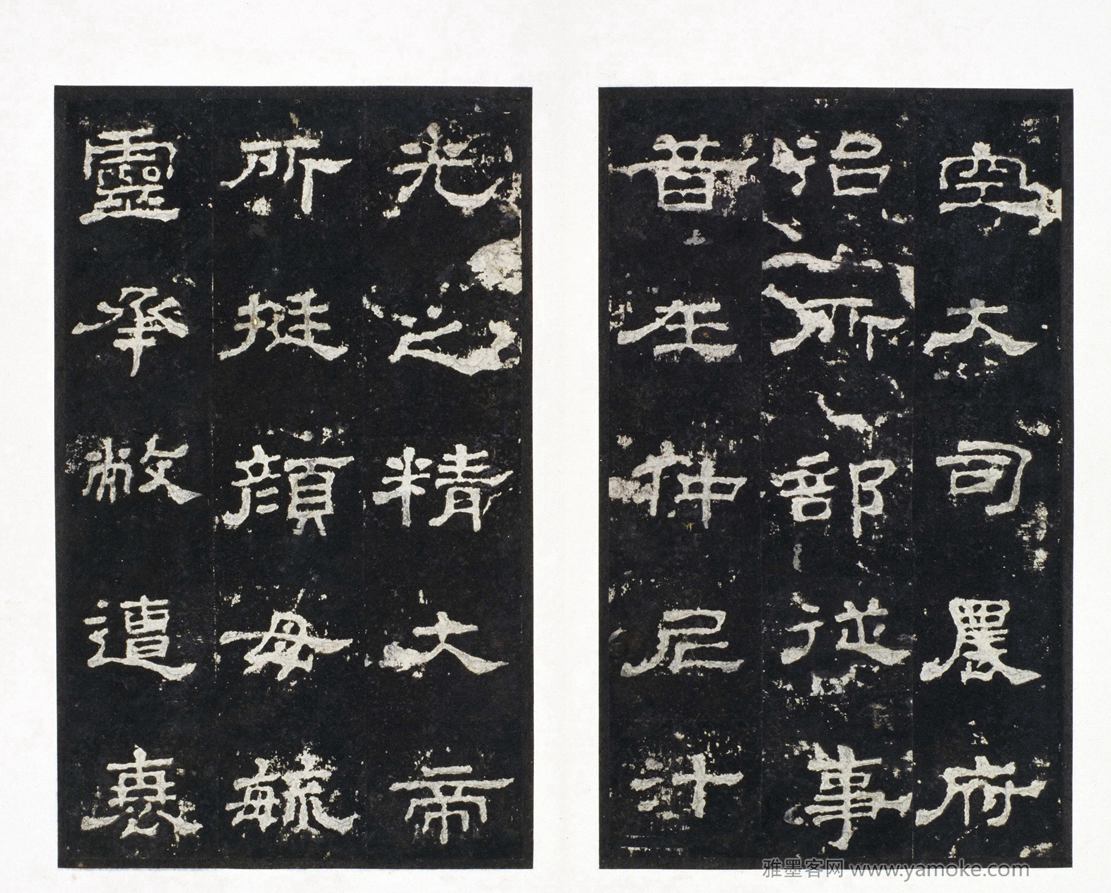 空大司農府
治所部從事
昔在仲尼汁
光之精大帝
所挺顏母毓
靈承敝遭衰
雅墨客网 www.yamoke.com